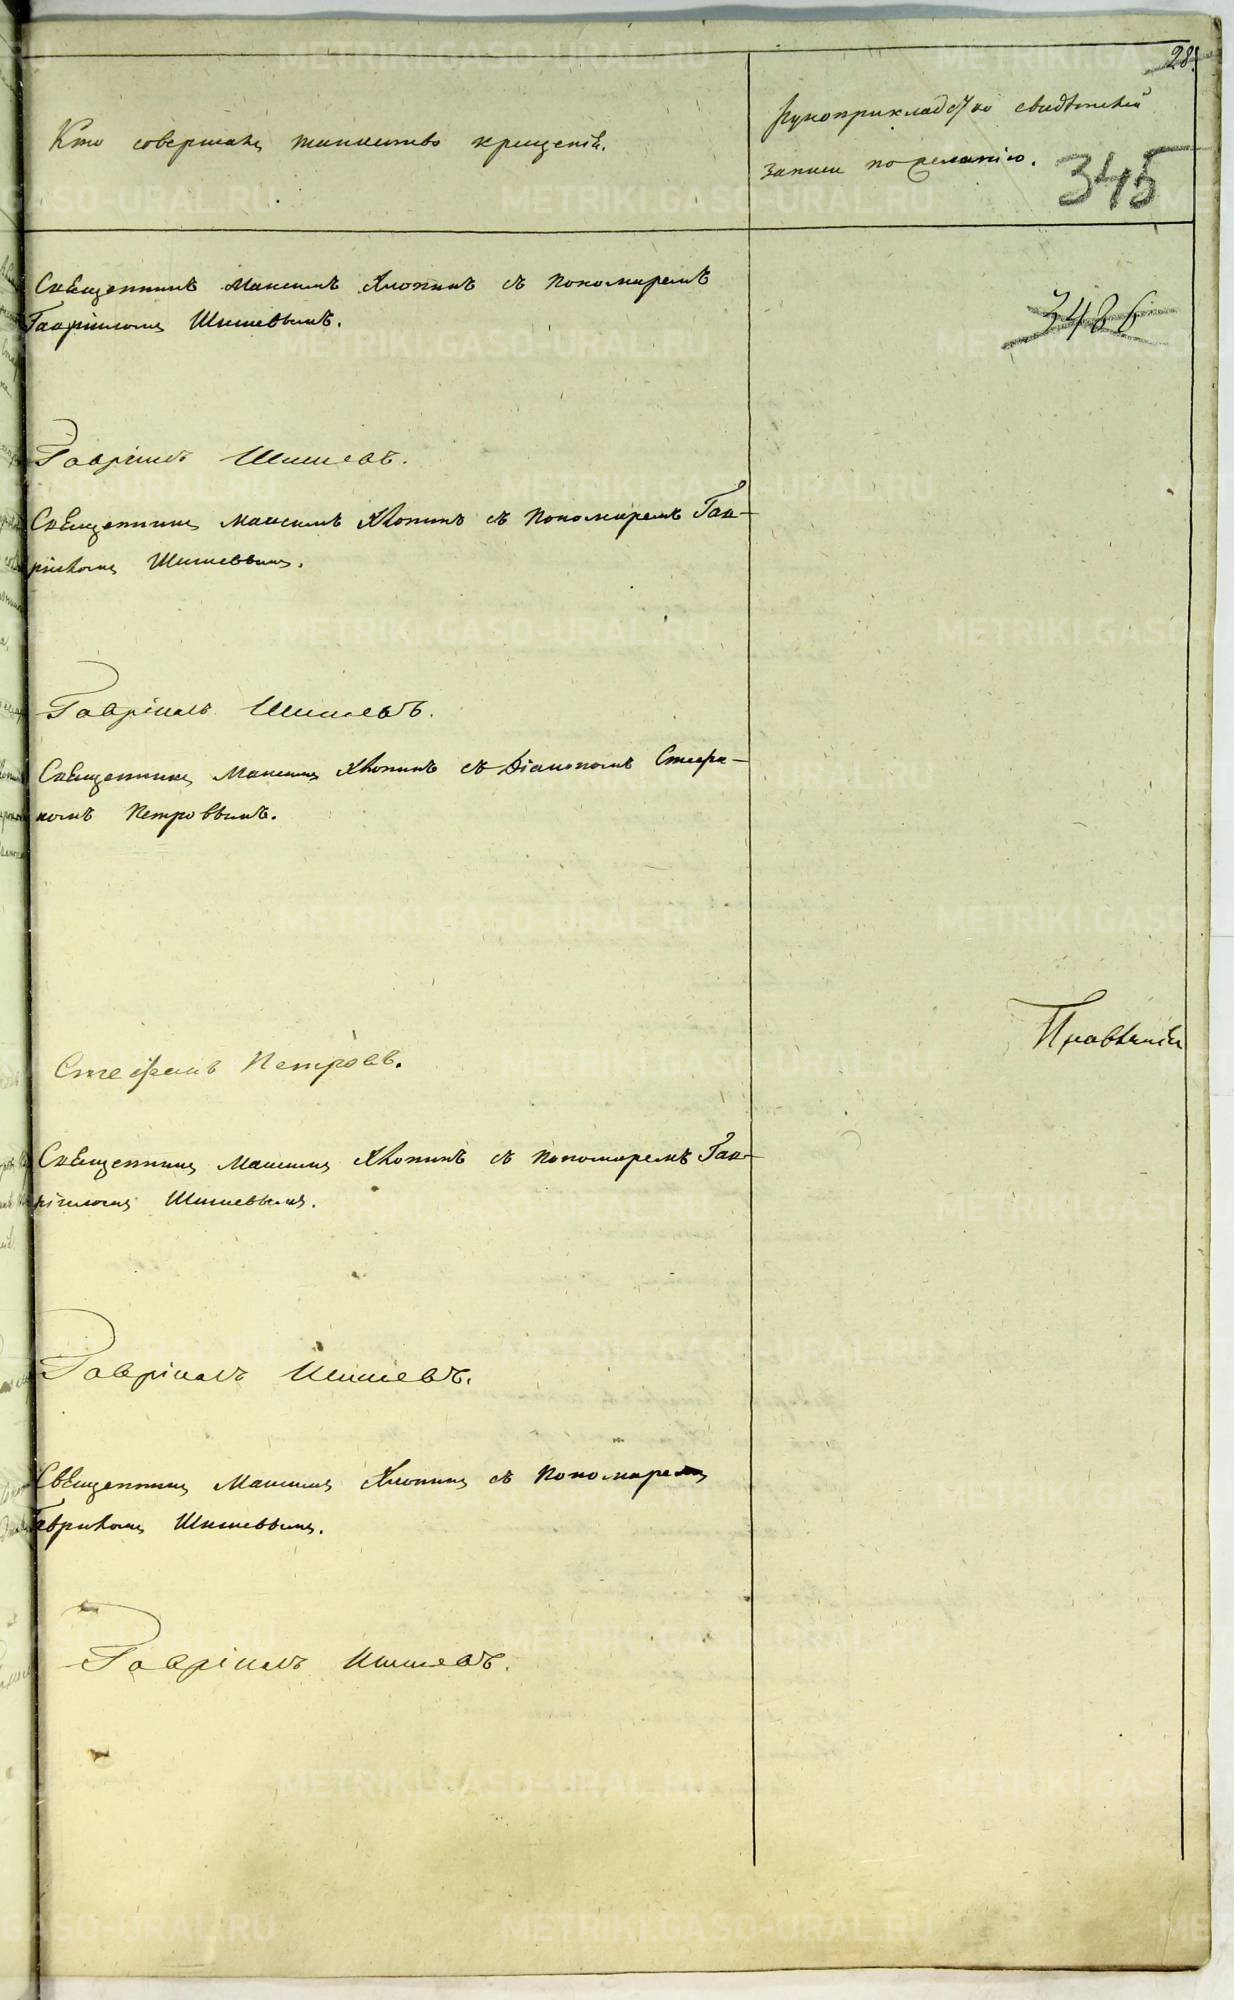 28
Кто совершалъ таинство крещенія.
Рукоприкладство свидѣтелей
записи по желанію.
345
Священникъ Максимъ Хлопинъ съ Пономаремъ
Гавріиломъ Шишевымъ.
3486
Гавріилъ Шишевъ.
Священникъ Максимъ Хлопинъ съ Пономаремъ Гав-
ріиломъ Шишевымъ.
Гавріилъ Шишевъ.
Священникъ Максимъ Хлопинъ съ Діакономъ Стефа-
номъ Петровымъ.
Правленія
Стефанъ Петровъ.
Священникъ Максимъ Хлопинъ съ Пономаремъ Гав-
ріиломъ Шишевымъ.
Гавріилъ Шишевъ.
Священникъ Максимъ Хлопинъ съ Пономаремъ
Гавриломъ Шишевымъ.
Гавріилъ Шишевъ.
METRIKI.GASO-URAL.RU